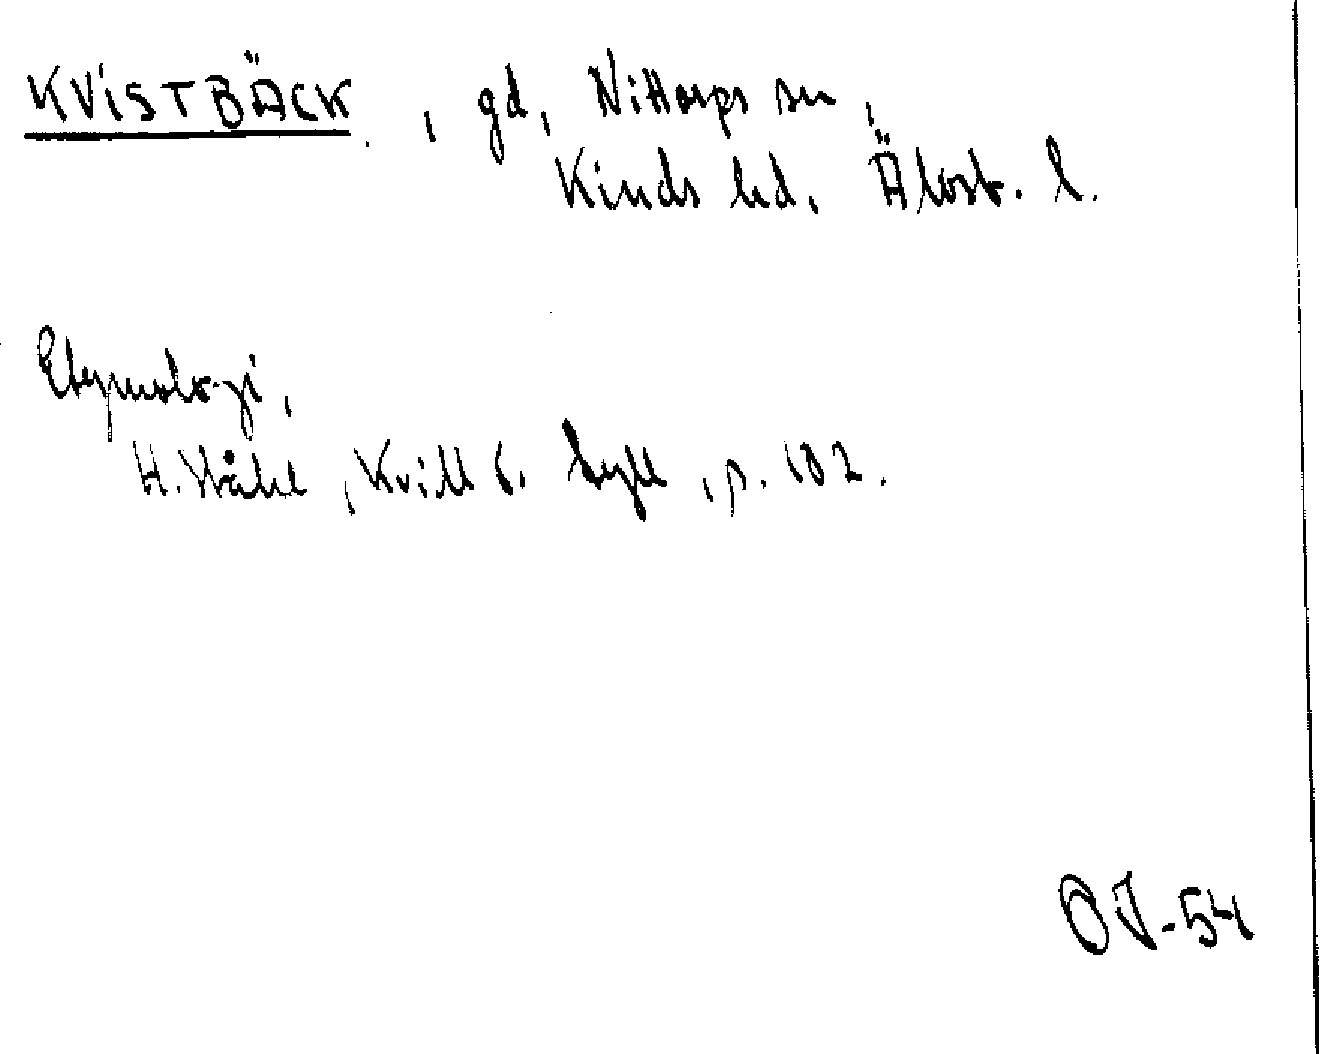 KVISTBÄCK, gd, Nittorps sn,
Kinds hd, Älvsb. l.
Etymologi,
H. Ståhl, Kvill o. tyll, p. 102.
OJ-54